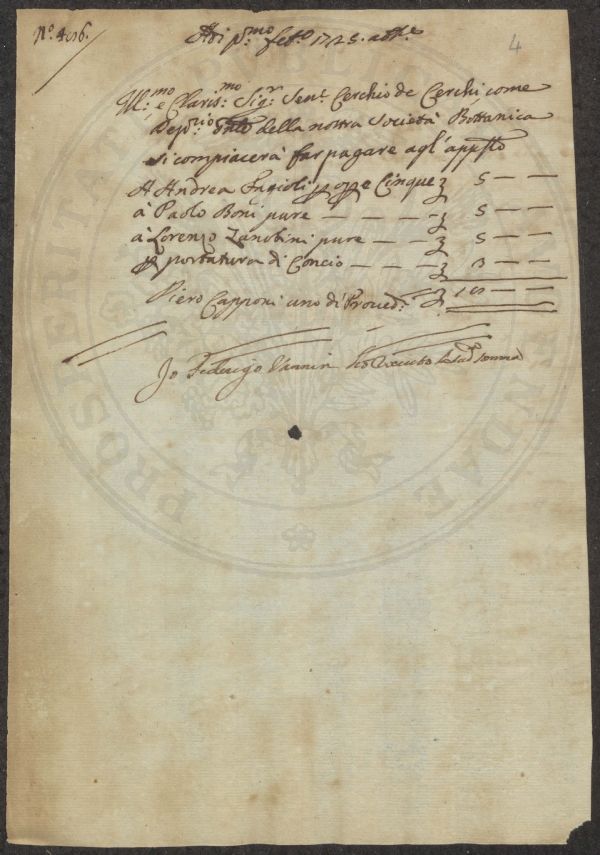 N.º 416.
Adi p.mo feb.o 1725. ab Inc.e
4
Ill.mo e Claris.mo Sig.r Sen.r Cerchio de Cerchi come
Depos.rio della nostra Società Bottanica
si compiacerà far pagare agl'app.sto
A Andrea Fagioli p opp.e Cinque 5 — —
à Paolo Boni pure — — — — 5 — —
à Lorenzo Zanobini pure — — 5 — —
p portatura di Concio — — — 3 — —
Piero Capponi uno di Proved.ri 18 — —
Io Federigo Vannini ho riceuto la sud.a somma
PROSPERITATI PUBLICAE AUGENDAE